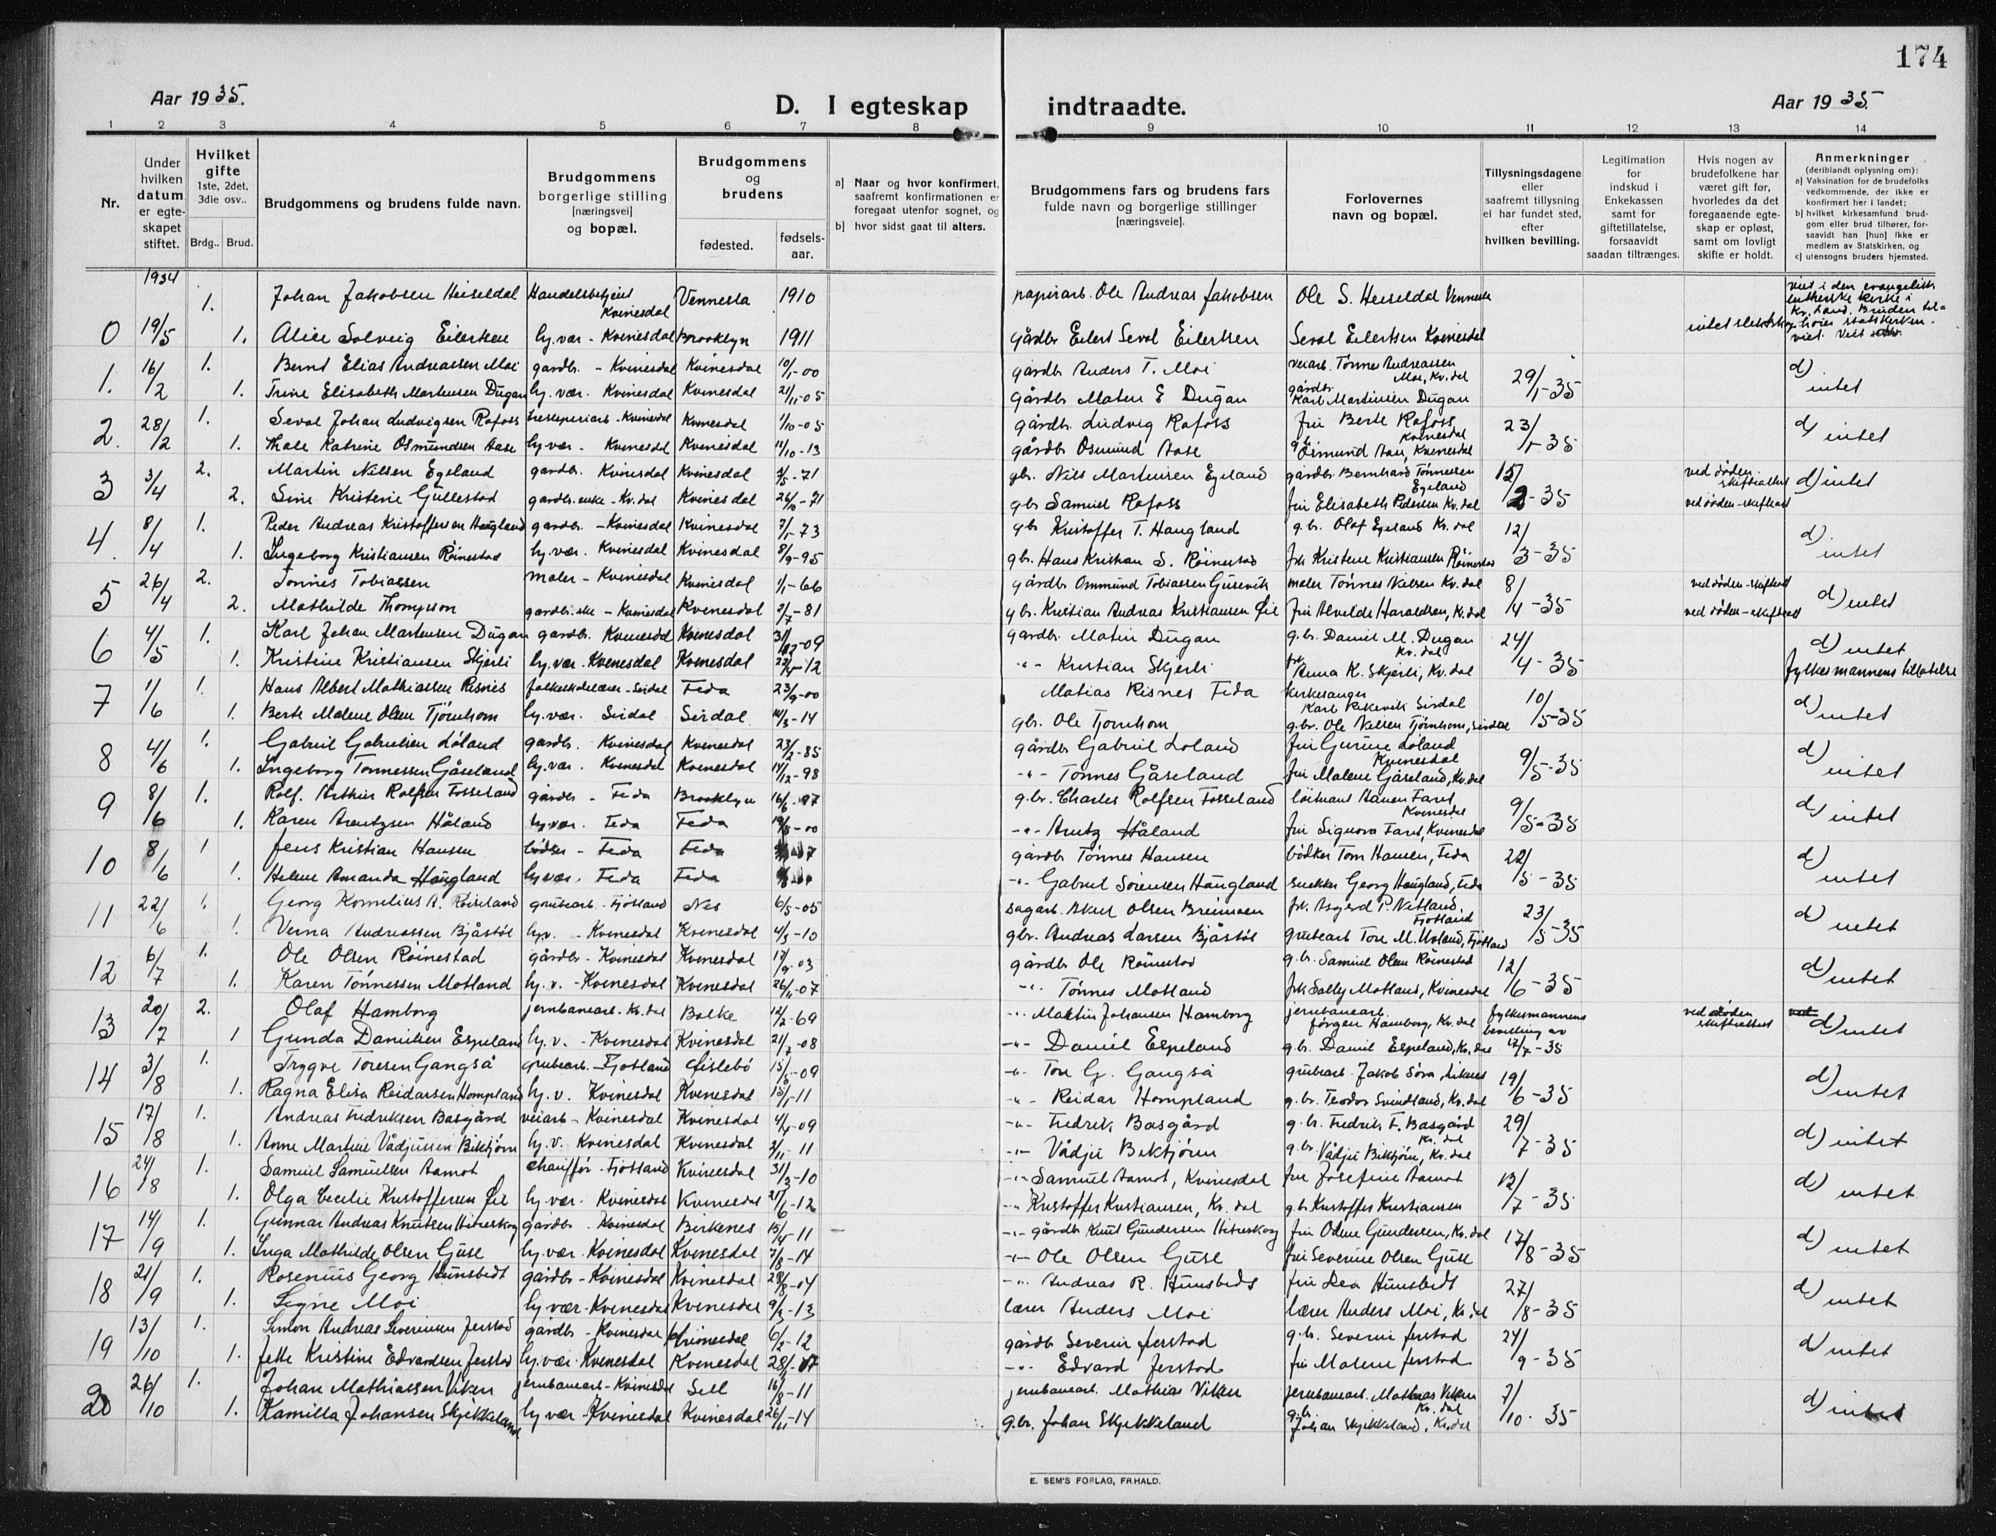 174
Aar 1935.
D. I egteskap indtraadte.
Aar 1935
1 2 3 4 5 6 7 8 9 10 11 12 13 14
Nr.
Under hvilken datum er egte-skapet stiftet.
Hvilket gifte 1ste, 2det, 3die osv..
Brdg.. Brud.
Brudgommens og brudens fulde navn.
Brudgommens borgerlige stilling [næringsvei] og bopæl.
Brudgommens og brudens
fødested.
fødsels-aar.
a] Naar og hvor konfirmert, saafremt konfirmationen er foregaat utenfor sognet, og
b] hvor sidst gaat til alters.
Brudgommens fars og brudens fars fulde navn og borgerlige stillinger [næringsvei].
Forlovernes navn og bopæl.
Tillysningsdagene eller saafremt tillysning ei har fundet sted, efter hvilken bevilling.
Legitimation for indskud i Enkekassen samt for giftetillatelse, forsaavidt saadan tiltrænges.
Hvis nogen av brudefolkene har været gift før, hvorledes da det foregaaende egte-skap er opløst, samt om lovligt skifte er holdt.
Anmerkninger (deriblandt oplysning om):
a] Vaksination for de brudefolks vedkommende, der ikke er konfirmert her i landet;
b] hvilket kirkesamfund brud-gom eller brud tilhører, for-saavidt han [hun] ikke er medlem av Statskirken, og
c] utensogns bruders hjemsted.
1934
1. Johan Jakobsen Heiseldal Handelsbetjent Kvinesdal Vennesla 1910 papirarb. Ole Andreas Jakobsen Ole S. Heiseldal Vennesla
0 19/5 1. Alice Solveig Eilertsen hy.vær - Kvinesdal Brooklyn 1911 gårdbr Eilert Seval Eilertsen Seval Eilertsen Kvinesdal
1. 16/2 1. Bernt Elias Andreassen Moi gardbr. - Kvinesdal Kvinesdal 10/1-00 gårdbr Anders T. Moi veiarb. Tønnes Andreassen Moi, Kv.dal 29/1-35 d) intet
1. Trine Elisabeth Martensen Dugan hy. vær. Kvinesdal Kvinesdal 21/11-05 Gårdbr Maten E Dugan gårdbr. Karl Martinsen Dugan
2. 28/2 1. Seval Johan Ludvigsen Rafoss Kvinesdal Kvinesdal 1/10-05 gårdbr. Ludvig Rafoss fru Berte Rafoss Kvinesdal 23/1-35 d) intet
1. Thale Katrine Osmundsen Aase hy.vær. - Kvinesdal Kvinesdal 11/10-13 gårdbr Osmund Aase Osmund Aase, Kvinesdal
3 3/4 2. Martin Nilsen Egeland gardbr. Kvinesdal Kvinesdal 2/5-71 gbr. Nils Martensen Egeland gårdbr. Bernhard Tønnessen Egeland 15/2-35 ved døden skifteattest d) intet
2. Sine Kristine Gullestad gardbr.enke - Kv.dal Kvinesdal 26/10-71 gbr Samuel Rafoss fru Elisabeth Pedersen Kv.dal ved døden-skifteatt
4. 8/4 1. Peder Andreas Kristoffersen Haugland gardbr. - Kvinesdal Kvinesdal 7/1-73 gbr Kristoffer T. Haugland g.br. Olaf Egeland Kv.dal 12/3-35 d) intet
1. Ingeborg Kristiansen Røinestad hy.vær. Kvinesdal Kvinesdal 8/9-95 gbr. Hans Kristian S. Røinestad frk Kristine Kristiansen Røinestad
5 26/4 2. Tønnes Tobiassen maler - Kvinesdal Kvinesdal 1/1-66 gårdbr Ommund Tobiassen Gusevik maler Tønnes Nilsen Kv.dal 8/4-35 ved døden-skifteatt d) intet
2. Mathilde Thompson Kvinesdal Kvinesdal 7/7-81 gbr. Kristian Andreas Kristiansen Øie fru Alvilde Haraldsen, Kv.dal ved døden-skifteatt
6 4/5 1. Karl Johan Martensen Dugan gardbr. Kvinesdal Kvinesdal 31/12-09 gardbr. Matin Dugan g.br. Daniel M. Dugan Kv.dal 24/4-35 d) intet
1. Kristine Kristiansen Skjerli hy.vær. Kvinesdal Kvinesdal 22/4-12 -"- Kristian Skjerli frk Anna K. Skjerli, Kv.dal fylkesmannens tillatelse
7 1/6 1. Hans Albert Mathiassen Risnes folkeskolelærer - Sirdal Feda 23/9-00 Matias Risnes Feda kirkesanger Karl Rikevik Sirdal 10/5-35 d) intet
1. Berte Malene Olsen Tjørnhom hy.vær. Sirdal Sirdal 14/3-14 gbr. Ole Tjørnhom g.br. Ole Nilsen Tjørnhom, Sirdal
8 4/6 1. Gabriel Gabrielsen Løland gardbr. Kvinesdal Kvinesdal 23/2-85 gårdbr Gabriel Løland fru Gurine Løland Kvinesdal 9/5-35 d) intet
1. Ingeborg Tønnessen Gåseland hy.vær. Kvinesdal Kvinesdal 14/12-98 -"- Tønnes Gåseland fru Malene Gåseland, Kv.dal
9 8/6 1. Rolf. Arthur Rolfsen Fosseland gårdbr - Feda Brooklyn 16/6-97 g.br. Charles Rolfsen Fosseland løitnant Faret Kvinesdal 9/5-35 d) intet
1. Karen Arentzsen Håland hy.vær. Feda Feda 19/8-00 -"- Arntz Håland fru Signora Faret, Kvinesdal
10 8/6 1. Jens Kristian Hansen bødker - Feda Feda gårdbr Tønnes Hansen bødker Tom Hansen, Feda 22/5-35 d) intet
1. Helene Amanda Haugland hy.vær. Feda Feda -"- Gabriel Sørensen Haugland snekker Georg Haugland, Feda
11 22/6 1. Georg Kornelius A. Røiseland grubearb. Fjotland Nes 6/5-05 sagarb. Aksel Olsen Breimoen frk. Asgerd P. Netland, Fjotland 23/5-35 d) intet
1. Verna Andreassen Bjåstøl hy.v. - Kvinesdal Kvinesdal 4/3-10 gbr. Andreas Larsen Bjåstøl grubearb Tore M. Fjotland
12 6/7 1. Ole Olsen Røinestad gårdbr - Kvinesdal Kvinesdal 17/9-03 gårdbr Ole Røinestad g.br. Samuel Olsen Røinestad 12/6-35 d) intet
1. Karen Tønnessen Motland hy.v. - Kvinesdal Kvinesdal 26/11-07 -"- Tønnes Motland frk Sally Motland, Kvinesdal
13 20/7 2. Olaf Hamborg jernbanearb - Kv.dal Bakke 12/2-69 -"- Martin Johansen Hamborg jernbanearb. Jørgen Hamborg, Kv.dal fylkesmannens bevilling av 17/7-35 ved døden skifteattest d) intet
1 Gunda Danielsen Espeland hy.v. - Kvinesdal Kvinesdal 21/7-08 -"- Daniel Espeland g.br. Daniel Espeland, Kv.dal
14 3/8 1. Trygve Toresen Gangså grubearb - Fjotland Øislebø 15/5-09 -"- Tore G. Gangså grubearb. Jakob Søra, Liknes 19/6-35 d) intet
1. Ragna Elisa Reidarsen Hompland hy.v. Kvinesdal Kvinesdal 15/1-11 -"- Reidar Hompland g.br. Teodor Svindland, Kv.dal
15 17/8 1. Andreas Fedriksen Basgård veiarb - Kvinesdal Kvinesdal 4/4-09 -"- Fedrik Basgård g.br. Fredrik F. Basgård Kv.dal 29/7-35 d) intet
1. Anne Martine Vådjussen Biktjørn hy.v. Kvinesdal Kvinesdal 3/11-11 -"- Vådju Biktjørn g.br. Vådju Biktjørn, Kv.dal
16 24/8 1. Samuel Samuelsen Aamot chauffør - Fjotland Kvinesdal 31/3-10 -"- Samuel Aamot, Kvinesdal fru Josefine Aamot 12/7-35 d) intet
1. Olga Cecilie Kristoffersen Øie hy.vær. Kvinesdal Kvinesdal 21/6-12 -"- Kristoffer Kristiansen, Kv.dal g.br Kristoffer Kristiansen
17 14/9 1. Gunnar Andreas Knutsen Hitreskog gårdbr - Kvinesdal Birkenes 15/4-11 - -"- gårdbr Knut Gundersen Hitreskog fru Odine Gundersen, Kv.dal 17/8-35 d) intet
1. Inga Mathilde Olsen Guse hy.vær. Kvinesdal Kvinesdal 7/8-14 -"- Ole Olsen Guse fru Severine Olsen Guse
18 21/9 1. Rosenius Georg Hunsbedt gårdbr - Kvinesdal Kvinesdal 28/8-04 -"- Andreas R. Hunsbedt fru Lea Hunsbedt 27/8-35 d) intet
1. Signe Moi hy.vær. Kvinesdal Kvinesdal 9/3-13 lærer Anders Moi lærer Anders Moi, Kv.dal
19 13/10 1. Simon Andreas Severinsen Jerstad gårdbr - Kvinesdal Kvinesdal 6/2-12 gårdb Severin Jerstad g.br. Severin Jerstad 24/9-35 d) intet
1. Jette Kristine Edvardsen Jerstad hy.vær. Kvinesdal Kvinesdal -"- Edvard Jerstad fru Malene Jerstad
20 26/10 1. Johan Mathiassen Viken jernbanearb - Kvinesdal Sell 16/8-11 jernbanearb. Mathias Viken jernbanearb. Mathias Viken Kv.dal 7/10-35 d) intet
1. Kamilla Johansen Skjekkeland hy.vær - Kvinesdal Kvinesdal 26/11-14 g.br. Johan Skjekkeland g.br. Johan Skjekkeland, Kv.dal
E. SEM'S FORLAG, FR.HALD.